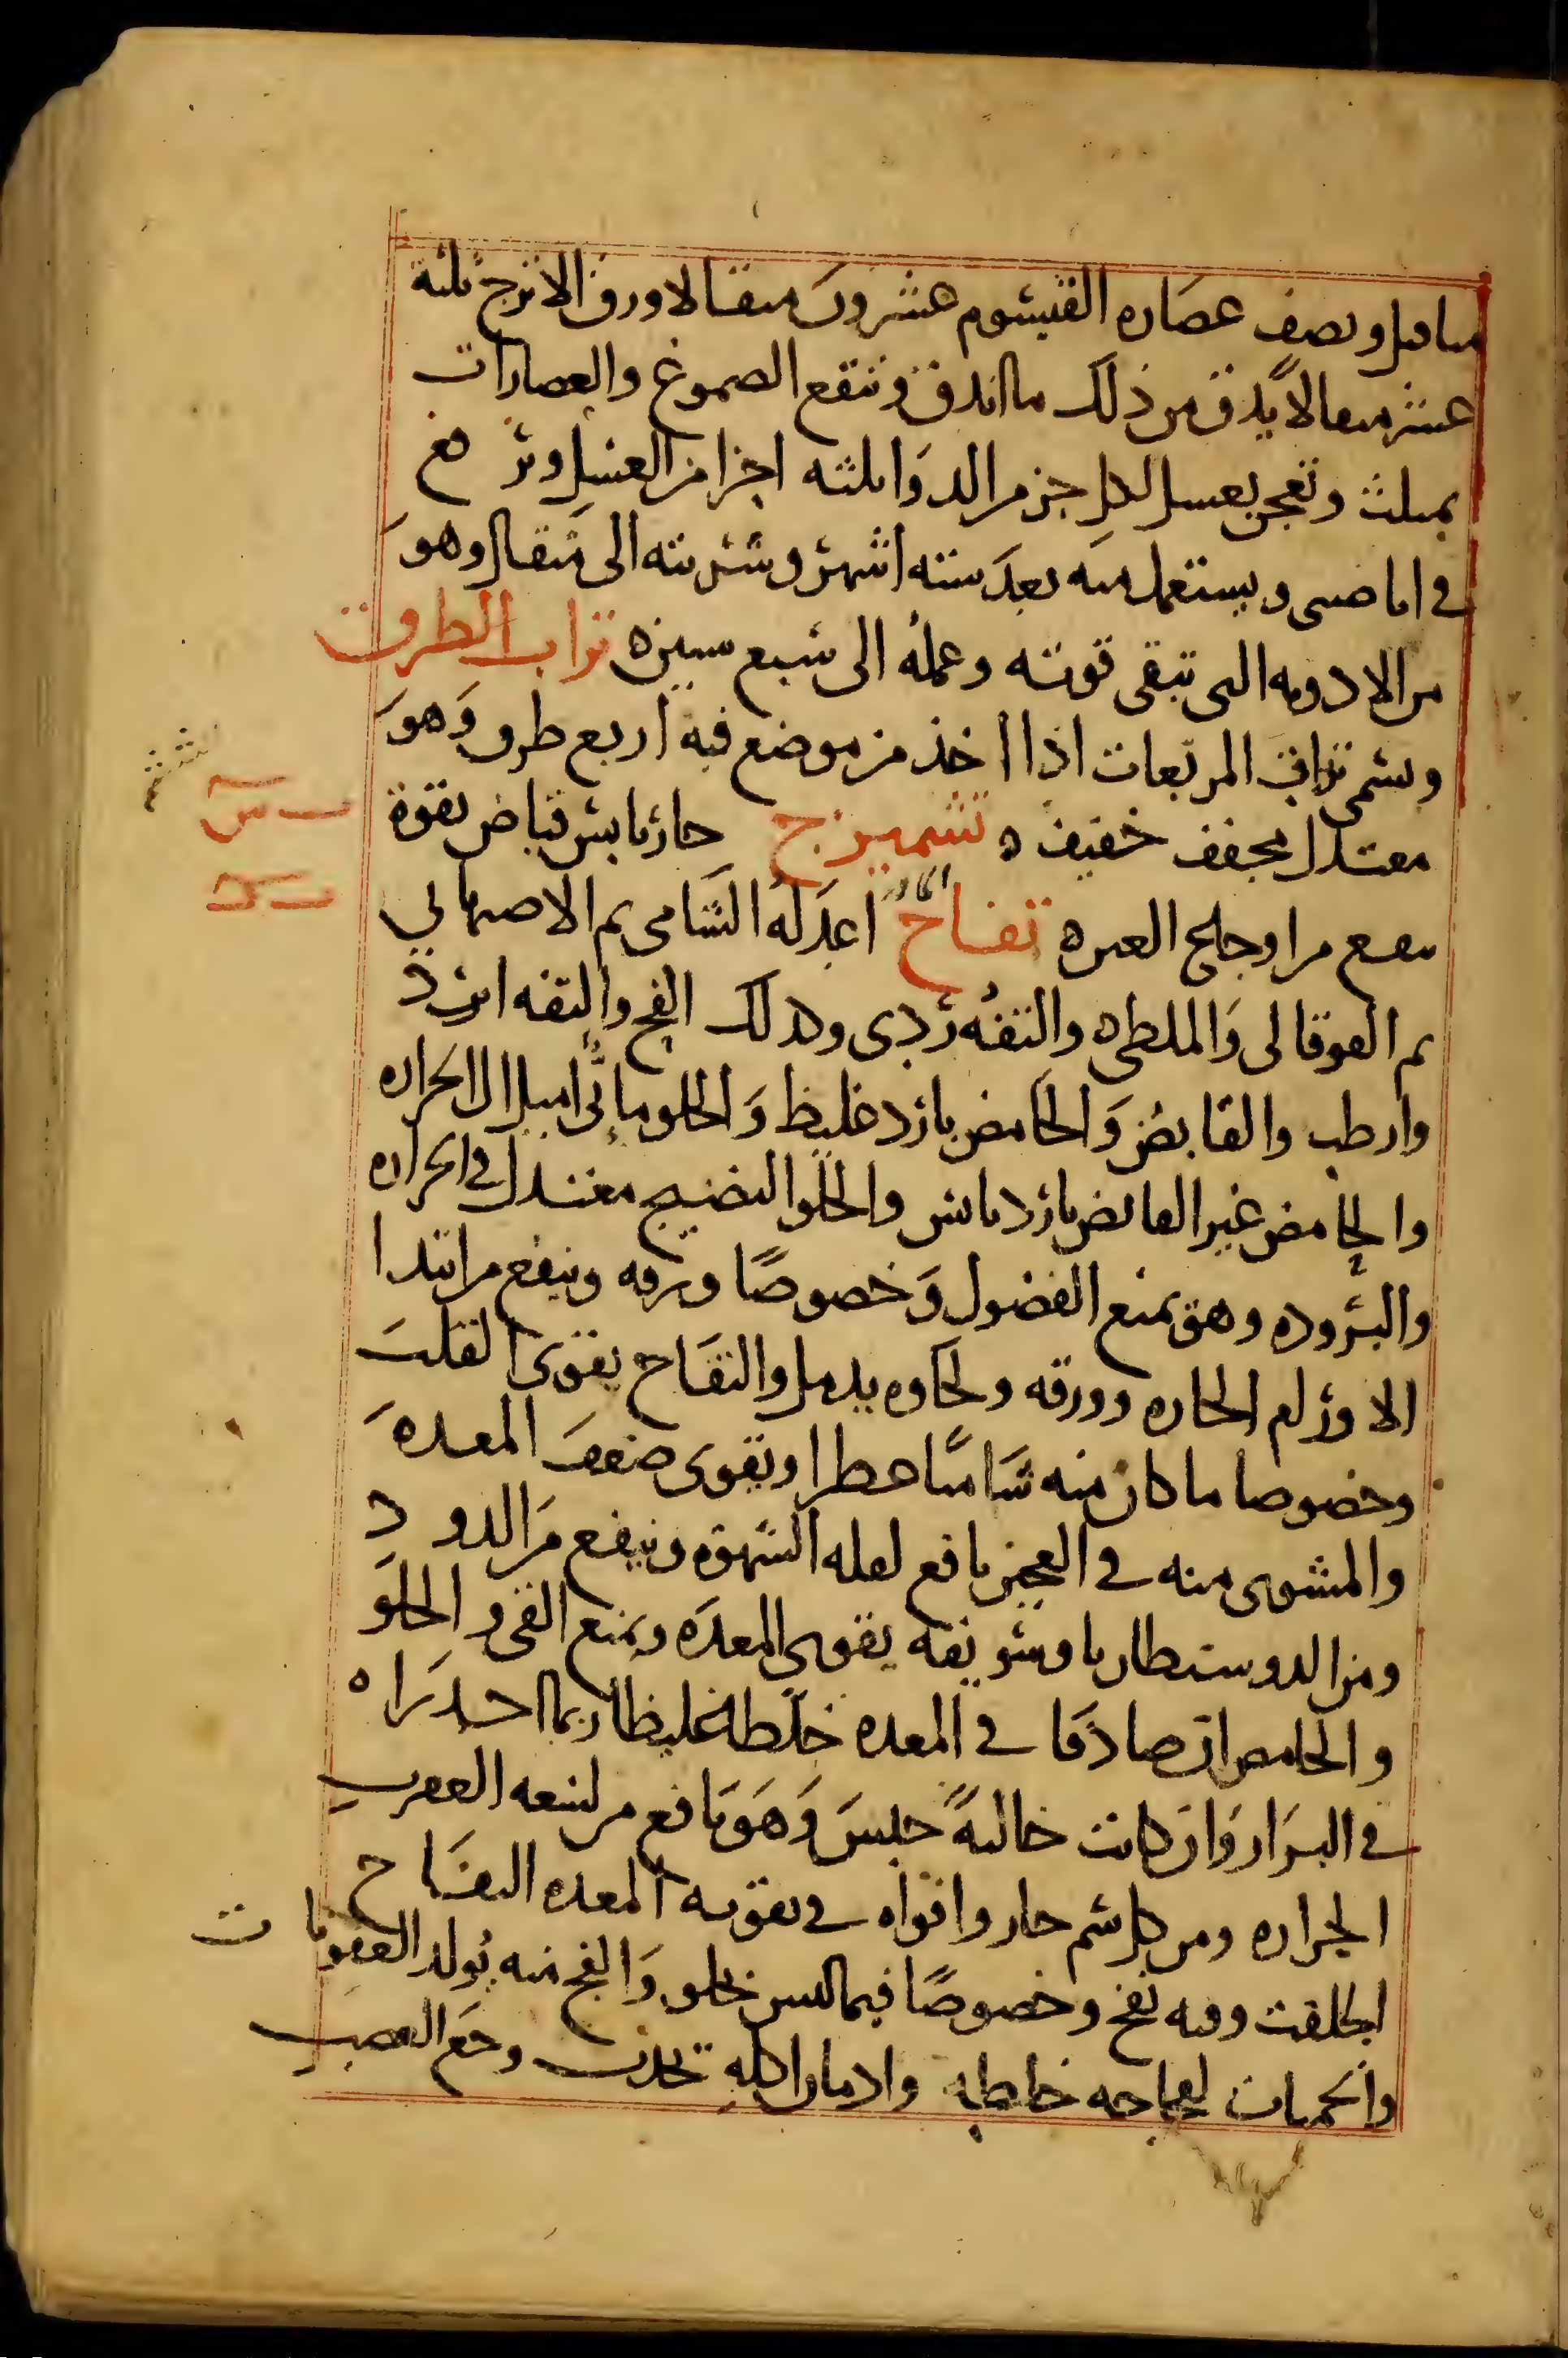 مثاقيل ونصف عصاره القيشوم عشرون مثقالا ورق الاترج ثلثة
عشر مثقالا يدق من ذلك ما اندق وتنقع الصموغ والعصارات
بمثلث وتعجن بعسل لكل جز من الدوا ثلثه اجزا من العسل وترفع
في اما صيى ويستعمل منه بعد ستته اشهر وشربته الى مثقال وهو
من الادويه التى تبقى قوته وعمله الى سبع سنين ه تراب الطرق
ويسمى تراب المربعات اذا اخذ من موضع فيه اربع طرق وهو
معتدل مجفف خفيف ه تشميزج حار يابس قباض بقوة
ينفع من اوجاع العين ه تفاح اعدله الشامى ثم الاصبهاني
ثم القوقالى والملطى ه والتفه ردى وكذلك الفج والتفه ابرد
وارطب والقابض والحامض بارد غليظ والحلو مائى اميل الى الحراره
والحامض غير القابض بارد يابس والحلو النضيج معتدل في الحراره
والبروده وهو يمنع الفضول وخصوصا ورقه وينفع من ابتدا
الاورام الحاره وورقه ولحاوه يدمل والتفاح يقوى القلب
وخصوصا ما كان منه شاميا عطرا ويقوى ضعف المعده
والمشوى منه في العجين نافع لقله الشهوه وينفع من الدود
ومن الدوسنطاريا وسويقه يقوى المعده ويمنع القى والحلو
والحامض ان صادفا في المعده خلطا غليظا ربما احدراه
في البراز وان كانت خاليه حبس وهو نافع من لسعه العقرب
الجراره ومن كل سم حار واقواه في تقويه المعده التفاح
الجلفت وفيه نفخ وخصوصا فيما ليس بحلو والفج منه يولد العفونات
والحميات لفجاجه خلطه وادمان اكله تحدث وجع العصب